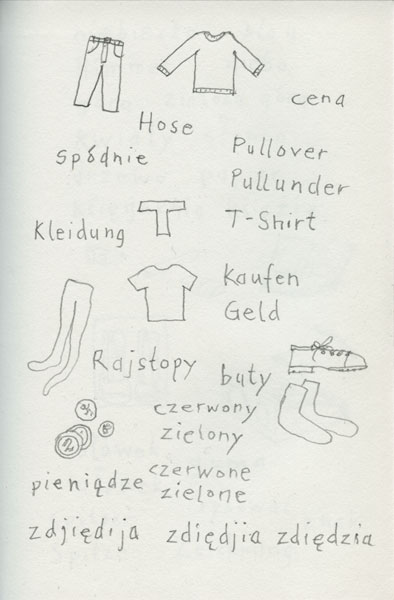 cena
Hose
spódnie
Pullover
Pullunder
Kleidung
T-Shirt
Kaufen
Geld
Rajstopy
buty
czerwony
zielony
pieniądze
czerwone
zielone
zdjiędija zdiędjia zdiędzia